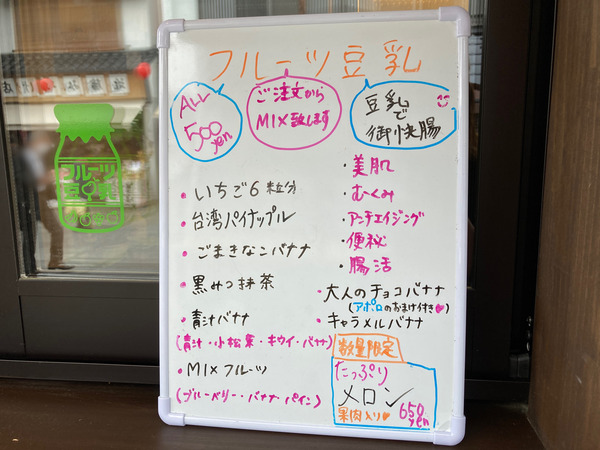 フルーツ豆乳
ALL
500
yen
ご注文から
MIX致します
豆乳で
御快腸
・いちご6粒分
・台湾パイナップル
・ごまきなこバナナ
・黒みつ抹茶
・青汁バナナ
(青汁・小松菜・キウイ・バナナ)
・MIXフルーツ
(ブルーベリー・バナナ・パイン)
・美肌
・むくみ
・アンチエイジング
・便秘
・腸活
・大人のチョコバナナ
(アポロのおまけ付き♥)
・キャラメルバナナ
数量限定
たっぷり
メロン
果肉入り♥
650
yen
フルーツ
豆乳